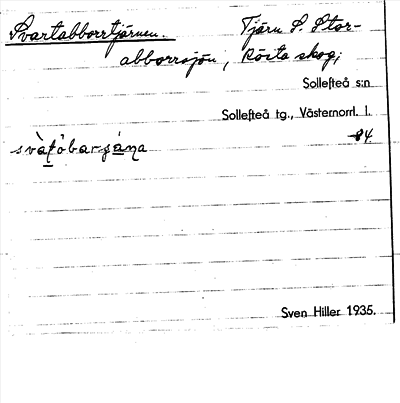 Svartabborrtjärnen. Tjärn S. Stor-
abborrsjön, Rösta skog;
Sollefteå s:n
Sollefteå tg., Västernorrl. l.
84.
Sven Hiller 1935.